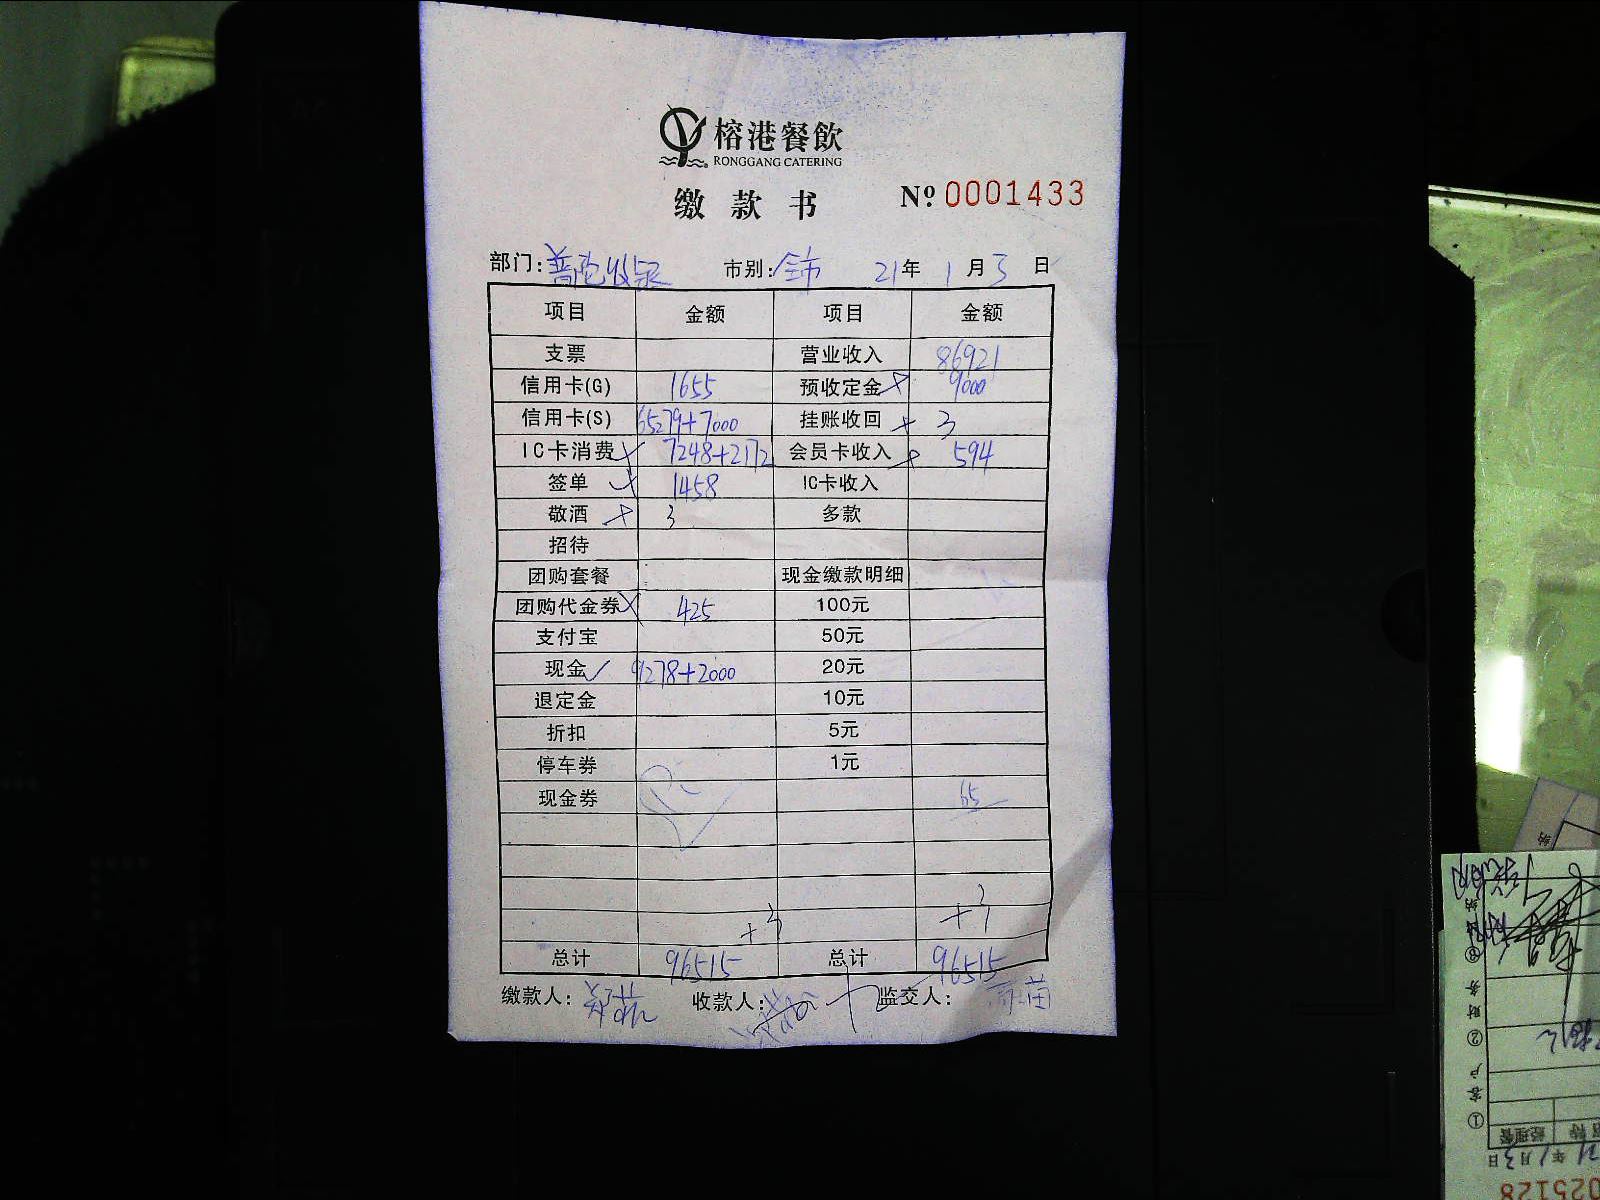 榕港餐飲
RONGGANG CATERING
缴款书
№ 0001433
部门：普陀收银 市别：全市 21年1月3日
项目 金额 项目 金额
支票 营业收入 86921
信用卡(G) 1655 预收定金 9000
信用卡(S) 65279+7000 挂账收回 + 3
IC卡消费 7248+2172 会员卡收入 594
签单 1458 IC卡收入
敬酒 3 多款
招待
团购套餐 现金缴款明细
团购代金券 425 100元
支付宝 50元
现金✓ 9278+2000 20元
退定金 10元
折扣 5元
停车券 1元
现金券 65
+3 +3
总计 96515 总计 96515
缴款人： 收款人： 监交人：
①客户 ②财务
025128